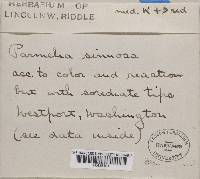 HERBARIUM OF
LINCOLN W. RIDDLE
med. K + > red
Parmelia sinuosa
acc. to color and reaction
but with sorediate tips
Westport, Washington
(see data inside)